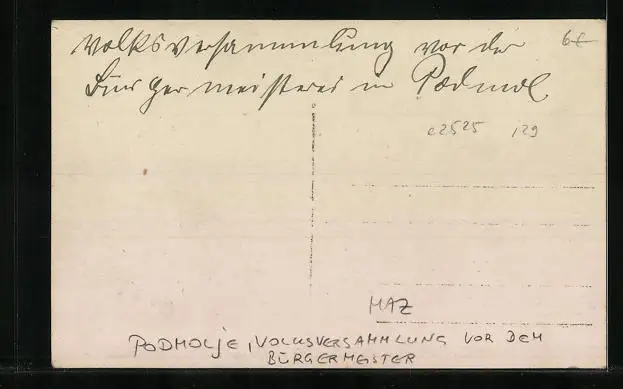 Volksversammlung vor der 6€
Bürgermeisterei in Podmol
e2525 ,29
MAZ
PODMOLJE, VOLKSVERSAMMLUNG VOR DEM
BÜRGERMEISTER